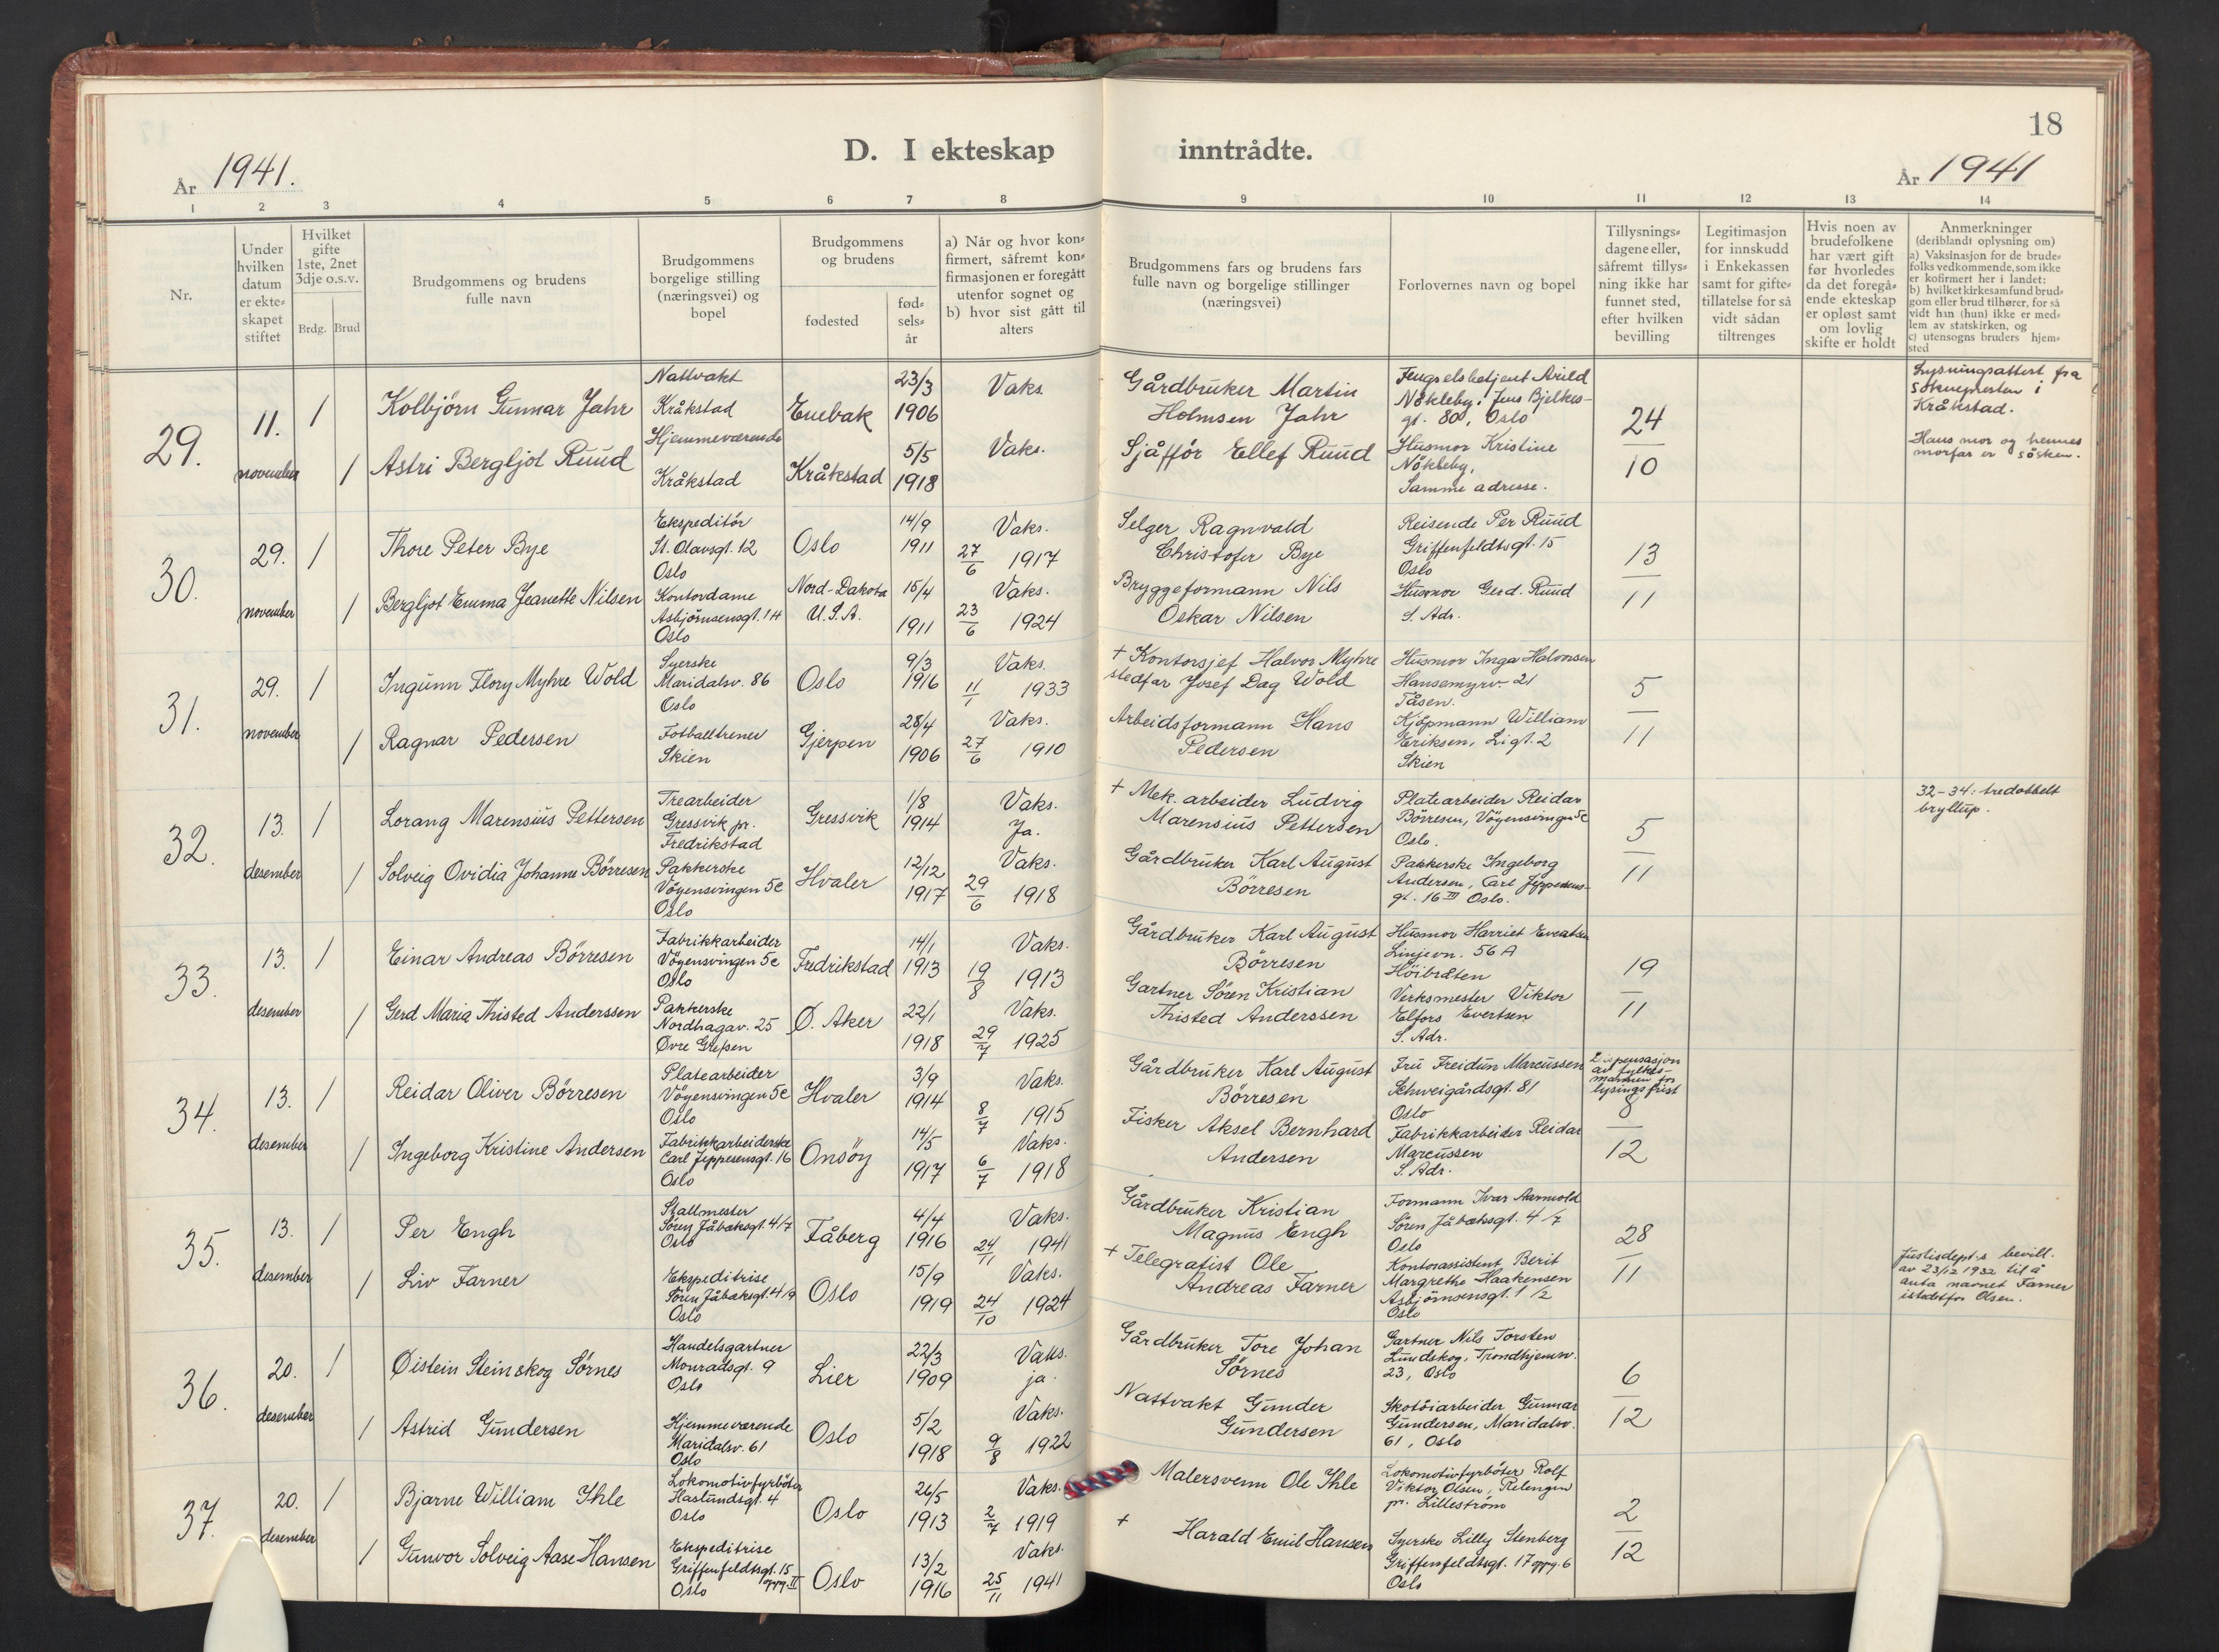 18
D. I ekteskap inntrådte.
År 1941. År 1941
1 2 3 4 5 6 7 8 9 10 11 12 13 14
Nr.
Under hvilken datum er ekteskapet stiftet
Hvilket gifte 1ste, 2net 3dje o.s.v.
Brdg. Brud
Brudgommens og brudens fulle navn
Brudgommens borgelige stilling (næringsvei) og bopel
Brudgommens og brudens
fødested
fødselsår
a) Når og hvor konfirmert, såfremt konfirmasjonen er foregått utenfor sognet og
b) hvor sist gått til alters
Brudgommens fars og brudens fars fulle navn og borgelige stillinger (næringsvei)
Forlovernes navn og bopel
Tillysningsdagene eller, såfremt tillysning ikke har funnet sted, efter hvilken bevilling
Legitimasjon for innskudd i Enkekassen samt for giftetillatelse for så vidt sådan tiltrenges
Hvis noen av brudefolkene har vært gift før hvorledes da det foregående ekteskap er opløst samt om lovlig skifte er holdt
Anmerkninger
(deriblandt oplysning om)
a) Vaksinasjon for de brudefolks vedkommende, som ikke er kofirmert her i landet;
b) hvilket kirkesamfund brudgom eller brud tilhører, for så vidt han (hun) ikke er medlem av statskirken, og
c) utensogns bruders hjemsted
29.
11. november
1
Kolbjörn Gunnar Jahr
Nattvakt
Kråkstad
Enebak
23/3 1906
Vaks.
Gårdbruker Martin
Holmsen Jahr
Fengselsbetjent Arild
Nökleby, Jens Bjelkes-
gt. 80, Oslo
24
10
Lysningsattest fra
soknepresten i
Kråkstad.
1
Astri Bergljot Ruud
Hjemmeværende
Kråkstad
Kråkstad
5/5 1918
Vaks.
Sjåfför Ellef Ruud
Husmor Kristine
Nökleby,
Samme adresse.
Hans mor og hennes
morfar er sösken.
30.
29. november
1
Thore Peter Bye
Ekspeditör
St. Olavsgt. 12
Oslo
Oslo
14/9 1911
Vaks.
27/6 1917
Selger Ragnvald
Christofer Bye
Reisende Per Ruud
Griffenfeldtsgt. 15
Oslo
13
11
1
Bergljot Emma Jeanette Nilsen
Kontordame
Asbjörnsensgt. 14
Oslo
Nord-Dakota
U.S.A.
15/4 1911
Vaks.
23/6 1924
Bryggeformann Nils
Oskar Nilsen
Husmor Gerd. Ruud
S. Adr.
31.
29. november
1
Ingunn Flory Myhre Wold
Syerske
Maridalsv. 86
Oslo
Oslo
9/3 1916
Vaks.
11/1 1933
+ Kontorsjef Halvor Myhre
stedfar Josef Dag Wold
Husmor Inga Halvorsen
Hansemyrv. 21
Tåsen.
5
11
1
Ragnar Pedersen
Fotballtrener
Skien
Gjerpen
28/4 1906
Vaks.
27/6 1910
Arbeidsformann Hans
Pedersen
Kjöpmann William
Eriksen, Ligt. 2
Skien
32.
13. desember
1
Lorang Marensius Pettersen
Trearbeider
Gressvik pr.
Fredrikstad
Gressvik
1/8 1914
Vaks.
Ja.
+ Mek. arbeider Ludvig
Marensius Pettersen
Platearbeider Reidar
Börresen, Vöyensvingen 5c
Oslo.
5
11
32-34: tredobbelt
bryllup.
1
Solveig Ovidia Johanne Börresen
Pakkerske
Vöyensvingen 5c
Oslo
Hvaler
12/12 1917
Vaks.
29/6 1918
Gårdbruker Karl August
Börresen
Pakkerske Ingeborg
Andersen, Carl Jeppesens-
gt. 16 III Oslo.
33.
13. desember
1
Einar Andreas Börresen
Fabrikkarbeider
Vöyensvingen 5c
Oslo
Fredrikstad
14/1 1913
Vaks.
19/8 1913
Gårdbruker Karl August
Börresen
Husmor Harriet Evertsen
Linjevn. 56 A
Höibråten
19
11
1
Gerd Maria Thisted Anderssen
Pakkerske
Nordhagav. 25
Øvre Grefsen
Ø. Aker
22/1 1918
Vaks.
29/7 1925
Gartner Sören Kristian
Thisted Anderssen
Verksmester Viktor
Elfors Evertsen
S. Adr.
34.
13. desember
1
Reidar Oliver Börresen
Platearbeider
Vöyensvingen 5c
Oslo
Hvaler
3/9 1914
Vaks.
8/7 1915
Gårdbruker Karl August
Börresen
Fru Freidun Marcussen
Schweigårdsgt. 81
Oslo
Dispensasjon
av fylkes-
mannen for
lysingsfrist
8
12
1
Ingeborg Kristine Andersen
Fabrikkarbeiderske
Carl Jeppesensgt. 16
Oslo
Onsöy
14/5 1917
Vaks.
6/7 1918
Fisker Aksel Bernhard
Andersen
Fabrikkarbeider Reidar
Marcussen
S. Adr.
35.
13. desember
1
Per Engh
Stallmester
Sören Jåbæksgt. 4/7
Oslo
Fåberg
4/4 1916
Vaks.
24/11 1941
Gårdbruker Kristian
Magnus Engh
Formann Ivar Aamold
Sören Jåbæksgt. 4/7
Oslo
28
11
1
Liv Farner
Ekspeditrise
Sören Jåbæksgt. 4/9
Oslo
Oslo
15/9 1919
Vaks.
24/10 1924
+ Telegrafist Ole
Andreas Farner
Kontorassistent Berit
Margrethe Haakensen
Asbjörnsensgt. 1 1/2
Oslo
Justisdept.s bevill.
av 23/12 1932 til å
anta navnet Farner
istedetfor Olsen.
36.
20. desember
1
Øistein Steinskog Sörnes
Handelsgartner
Monradsgt. 9
Oslo
Lier
22/3 1909
Vaks.
ja.
Gårdbruker Tore Johan
Sörnes
Gartner Nils Torsten
Lundskog, Trondhjemsv.
23, Oslo
6
12
1
Astrid Gundersen
Hjemmeværende
Maridalsv. 61
Oslo
Oslo
5/2 1918
Vaks.
9/8 1922
Nattvakt Gunder
Gundersen
Skotöiarbeider Gunnar
Gundersen, Maridalsv.
61, Oslo
37.
20. desember
1
Bjarne William Ihle
Lokomotivfyrböter
Haslundsgt. 4
Oslo
Oslo
26/5 1913
Vaks.
2/7 1919
Malersvenn Ole Ihle
Lokomotivfyrböter Rolf
Viktor Olsen, Relengen
pr. Lilleström
2
12
1
Gunvor Solveig Aase Hansen
Ekspeditrise
Griffenfeldtsgt. 15
oppg. II
Oslo
Oslo
13/2 1916
Vaks.
25/11 1941
+ Harald Emil Hansen
Syerske Lilly Stenberg
Griffenfeldtsgt. 17 oppg. 6
Oslo